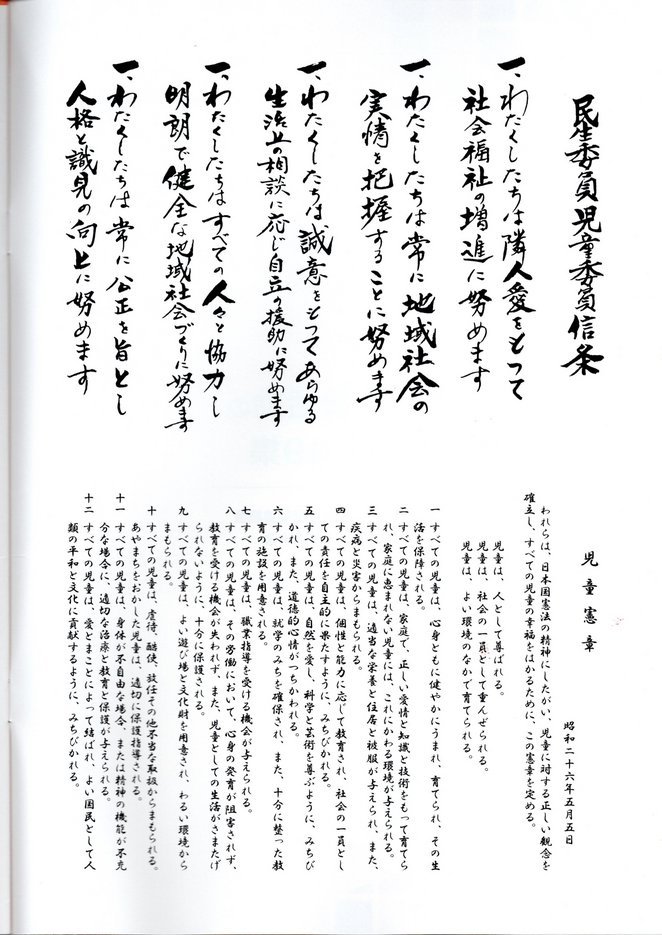 民生委員児童委員信条
一、わたくしたちは隣人愛をもって
社会福祉の増進に努めます
一、わたくしたちは常に地域社会の
実情を把握することに努めます
一、わたくしたちは誠意をもってあらゆる
生活上の相談に応じ自立の援助に努めます
一、わたくしたちはすべての人々と協力し
明朗で健全な地域社会づくりに努めます
一、わたくしたちは常に公正を旨とし
人格と識見の向上に努めます
児童憲章
昭和二十六年五月五日
われらは、日本国憲法の精神にしたがい、児童に対する正しい観念を
確立し、すべての児童の幸福をはかるために、この憲章を定める。
児童は、人として尊ばれる。
児童は、社会の一員として重んぜられる。
児童は、よい環境のなかで育てられる。
一 すべての児童は、心身ともに健やかにうまれ、育てられ、その生
活を保障される。
二 すべての児童は、家庭で、正しい愛情と知識と技術をもって育てら
れ、家庭に恵まれない児童には、これにかわる環境が与えられる。
三 すべての児童は、適当な栄養と住居と被服が与えられ、また、
疾病と災害からまもられる。
四 すべての児童は、個性と能力に応じて教育され、社会の一員とし
ての責任を自主的に果たすように、みちびかれる。
五 すべての児童は、自然を愛し、科学と芸術を尊ぶように、みちび
かれ、また、道徳的心情がつちかわれる。
六 すべての児童は、就学のみちを確保され、また、十分に整った教
育の施設を用意される。
七 すべての児童は、職業指導を受ける機会が与えられる。
八 すべての児童は、その労働において、心身の発育が阻害されず、
教育を受ける機会が失われず、また、児童としての生活がさまたげ
られないように、十分に保護される。
九 すべての児童は、よい遊び場と文化財を用意され、わるい環境から
まもられる。
十 すべての児童は、虐待、酷使、放任その他不当な取扱からまもられる。
あやまちをおかした児童は、適切に保護指導される。
十一 すべての児童は、身体が不自由な場合、または精神の機能が不充
分な場合に、適切な治療と教育と保護が与えられる。
十二 すべての児童は、愛とまことによって結ばれ、よい国民として人
類の平和と文化に貢献するように、みちびかれる。